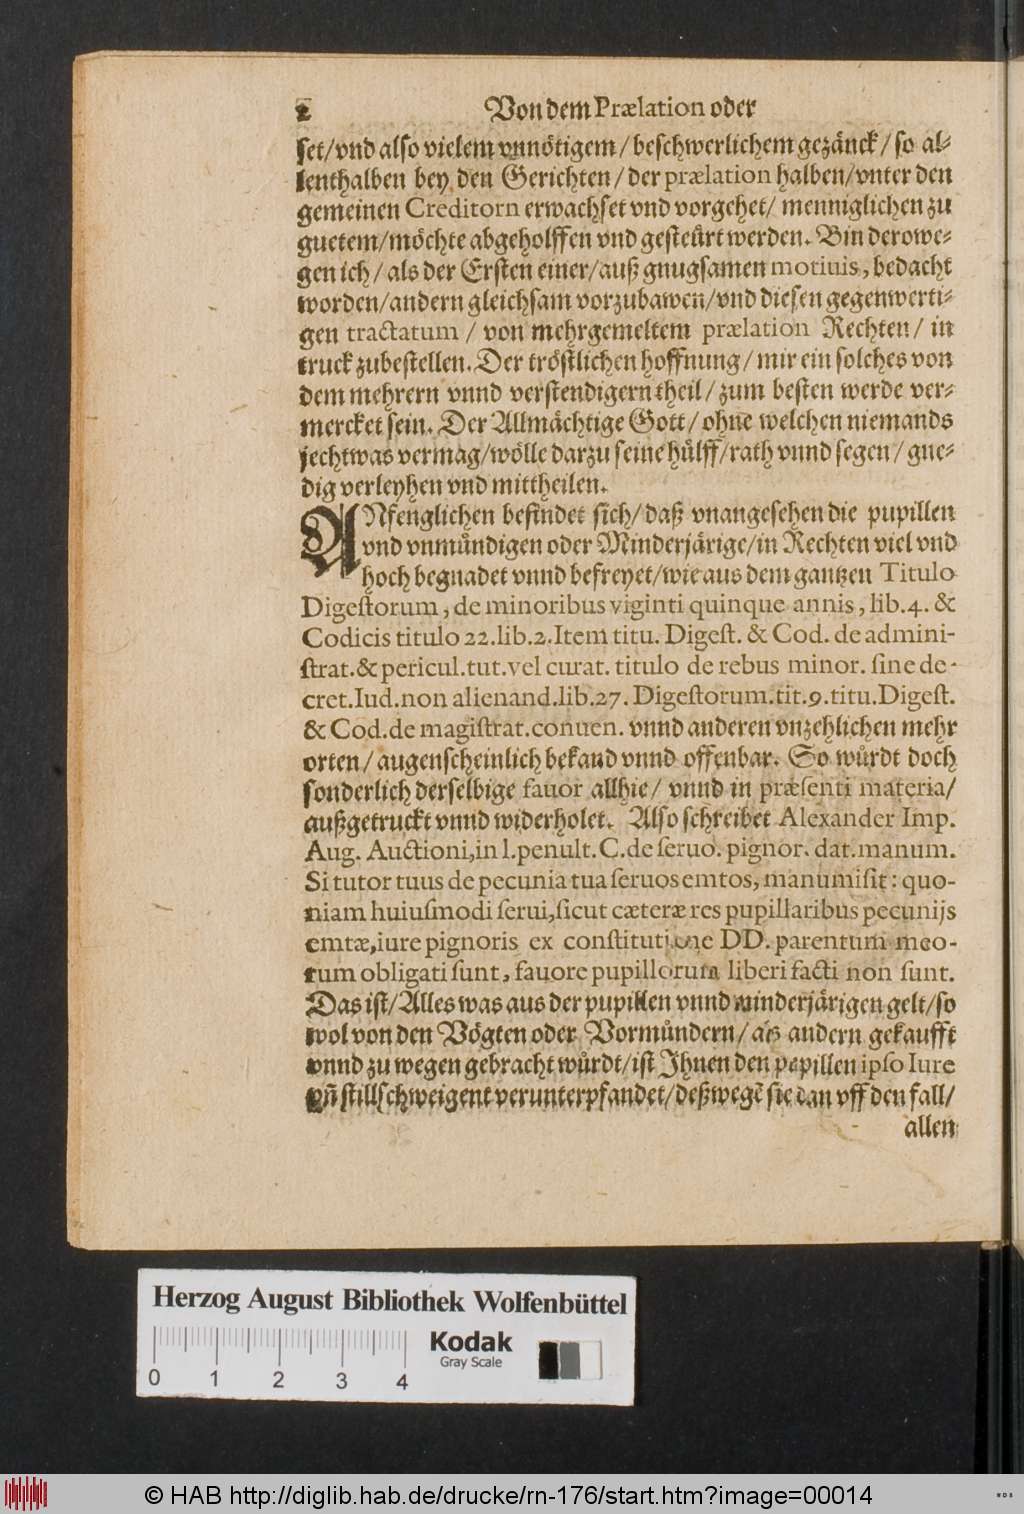 2 Von dem Prælation oder
set/vnd also vielem vnnötigem/beschwerlichem gezänck/so al-
lenthalben bey den Gerichten/der prælation halben/vnter den
gemeinen Creditorn erwachset vnd vorgehet/ menniglichen zu
guetem/möchte abgeholffen vnd gesteůrt werden. Bin derowe-
gen ich/als der Ersten einer/auß gnugsamen motiuis, bedacht
worden/andern gleichsam vorzubawen/vnd diesen gegenwerti-
gen tractatum / von mehrgemeltem prælation Rechten/ in
truck zubestellen. Der tröstlichen hoffnung/mir ein solches von
dem mehrern vnnd verstendigern theil/zum besten werde ver-
mercket sein. Der Allmächtige Gott/ohne welchen niemands
jechtwas vermag/wölle darzu seine hülff/rath vnnd segen/gne-
dig verleyhen vnd mittheilen.
ANfenglichen befindet sich/daß vnangesehen die pupillen
vnd vnmündigen oder Minderjärige/in Rechten viel vnd
hoch begnadet vnnd befreyet/wie aus dem gantzen Titulo
Digestorum, de minoribus viginti quinque annis, lib.4. &
Codicis titulo 22.lib.2.Item titu. Digest. & Cod. de admini-
strat.& pericul.tut.vel curat. titulo de rebus minor. sine de-
cret.Iud.non alienand.lib.27. Digestorum.tit.9.titu.Digest.
& Cod.de magistrat.conuen. vnnd anderen vnzehlichen mehr
orten/augenscheinlich bekand vnnd offenbar. So würdt doch
sonderlich derselbige fauor allhie/ vnnd in præsenti materia/
außgetruckt vnnd widerholet. Also schreibet Alexander Imp.
Aug. Auctioni,in l.penult.C.de seruo. pignor. dat.manum.
Si tutor tuus de pecunia tua seruos emtos, manumisit: quo-
niam huiusmodi serui,sicut cæteræ res pupillaribus pecunijs
emtæ,iure pignoris ex constitutione DD. parentum meo-
rum obligati sunt, fauore pupillorum liberi facti non sunt.
Das ist/Alles was aus der pupillen vnnd minderjärigen gelt/so
wol von den Vögten oder Vormündern/als andern gekaufft
vnnd zu wegen gebracht würdt/ist Ihnen den pupillen ipso Iure
vñ stillschweigent verunterpfandet/deßwegē sie dan vff den fall/
allen
Herzog August Bibliothek Wolfenbüttel
Kodak
Gray Scale
0 1 2 3 4
© HAB http://diglib.hab.de/drucke/rn-176/start.htm?image=00014